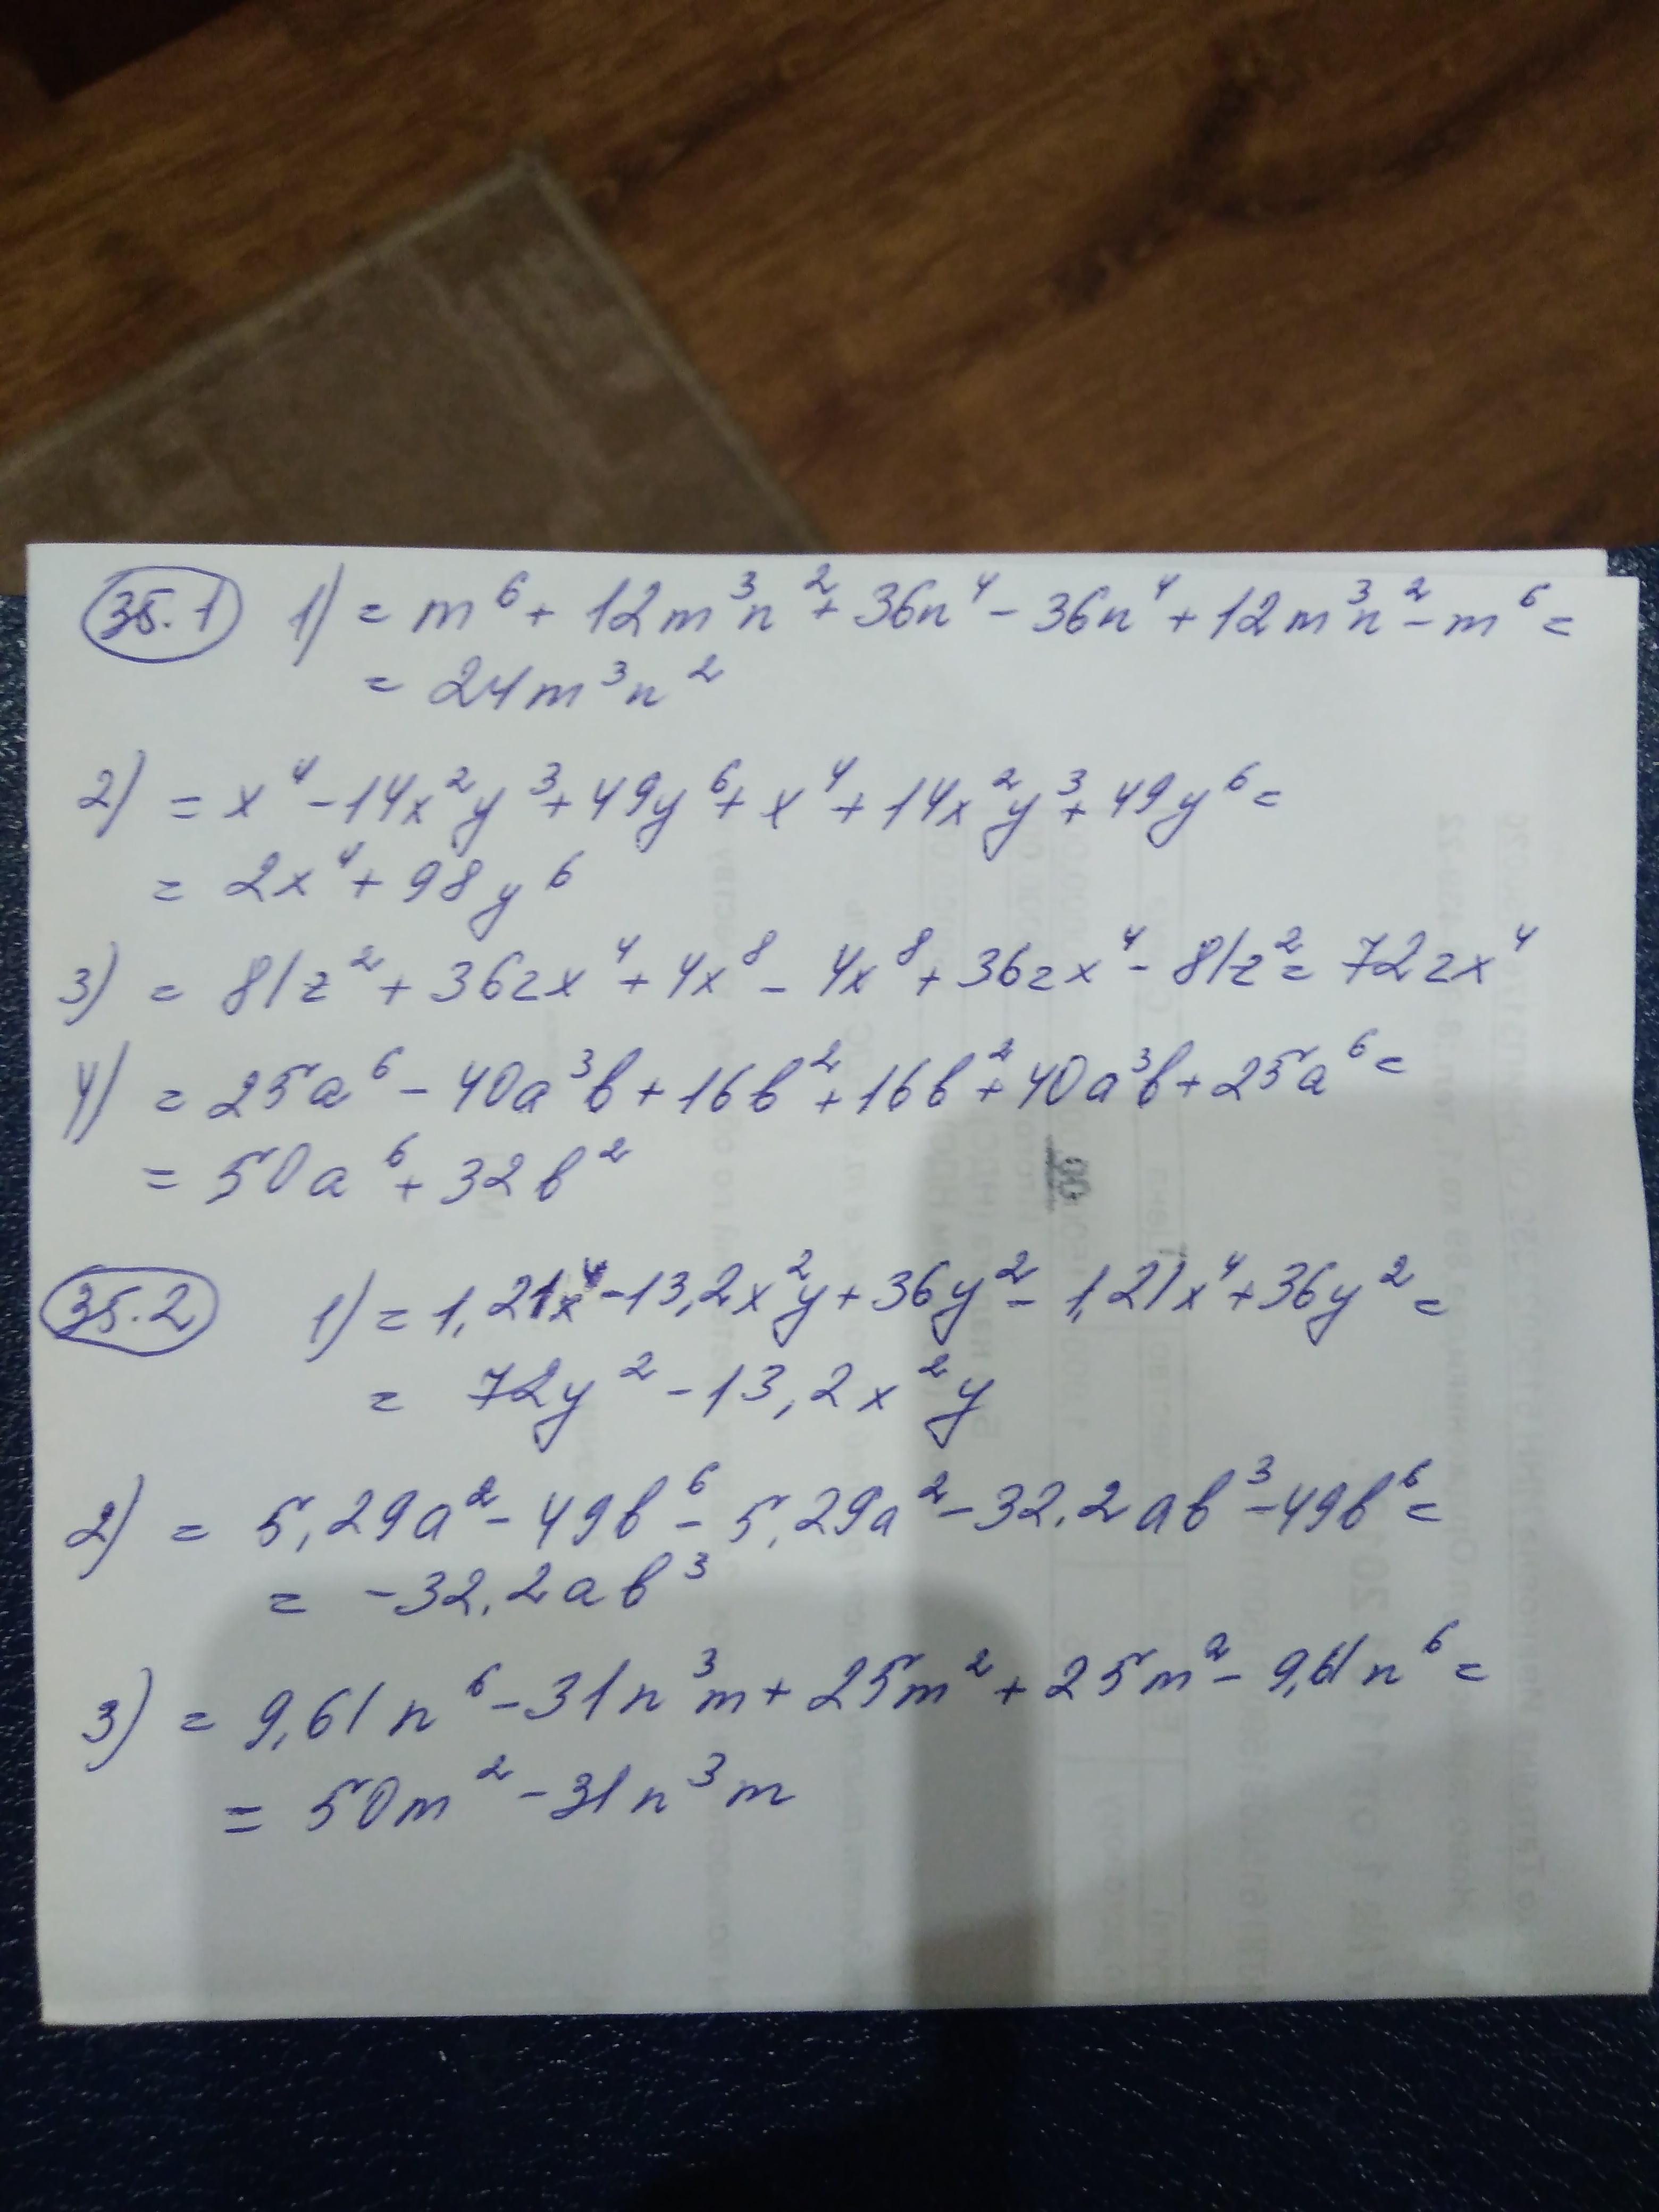 35.1 1) = m⁶ + 12m³n² + 36n⁴ - 36n⁴ + 12m³n² - m⁶ =
= 24m³n²
2) = x⁴ - 14x²y³ + 49y⁶ + x⁴ + 14x²y³ + 49y⁶ =
= 2x⁴ + 98y⁶
3) = 81z² + 36zx⁴ + 4x⁸ - 4x⁸ + 36zx⁴ - 81z² = 72zx⁴
4) = 25a⁶ - 40a³b + 16b² + 16b² + 40a³b + 25a⁶ =
= 50a⁶ + 32b²
35.2 1) = 1,21x⁴ - 13,2x²y + 36y² - 1,21x⁴ + 36y² =
= 72y² - 13,2x²y
2) = 5,29a² - 49b⁶ - 5,29a² - 32,2ab³ - 49b⁶ =
= -32,2ab³
3) = 9,61n⁶ - 31n³m + 25m² + 25m² - 9,61n⁶ =
= 50m² - 31n³m